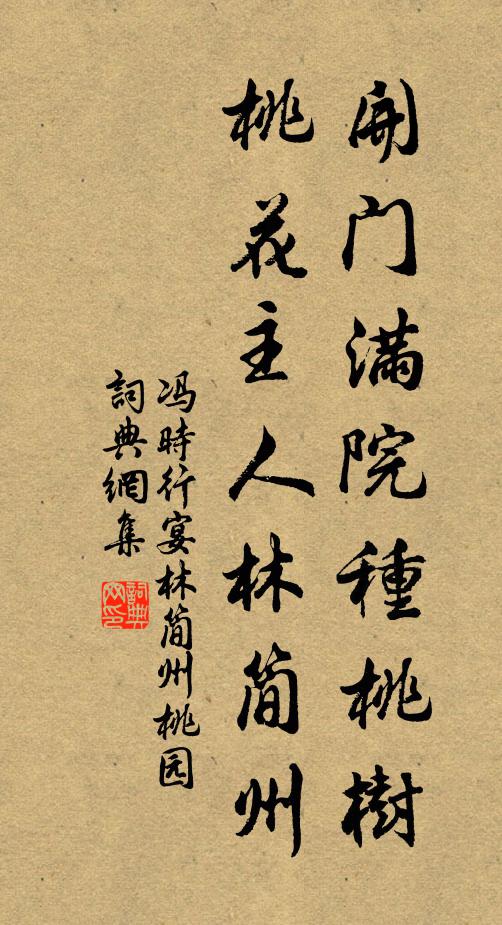 開门满院種桃樹
桃花主人林简州
冯時行宴林简州桃园
詞典網集
詞典
网印